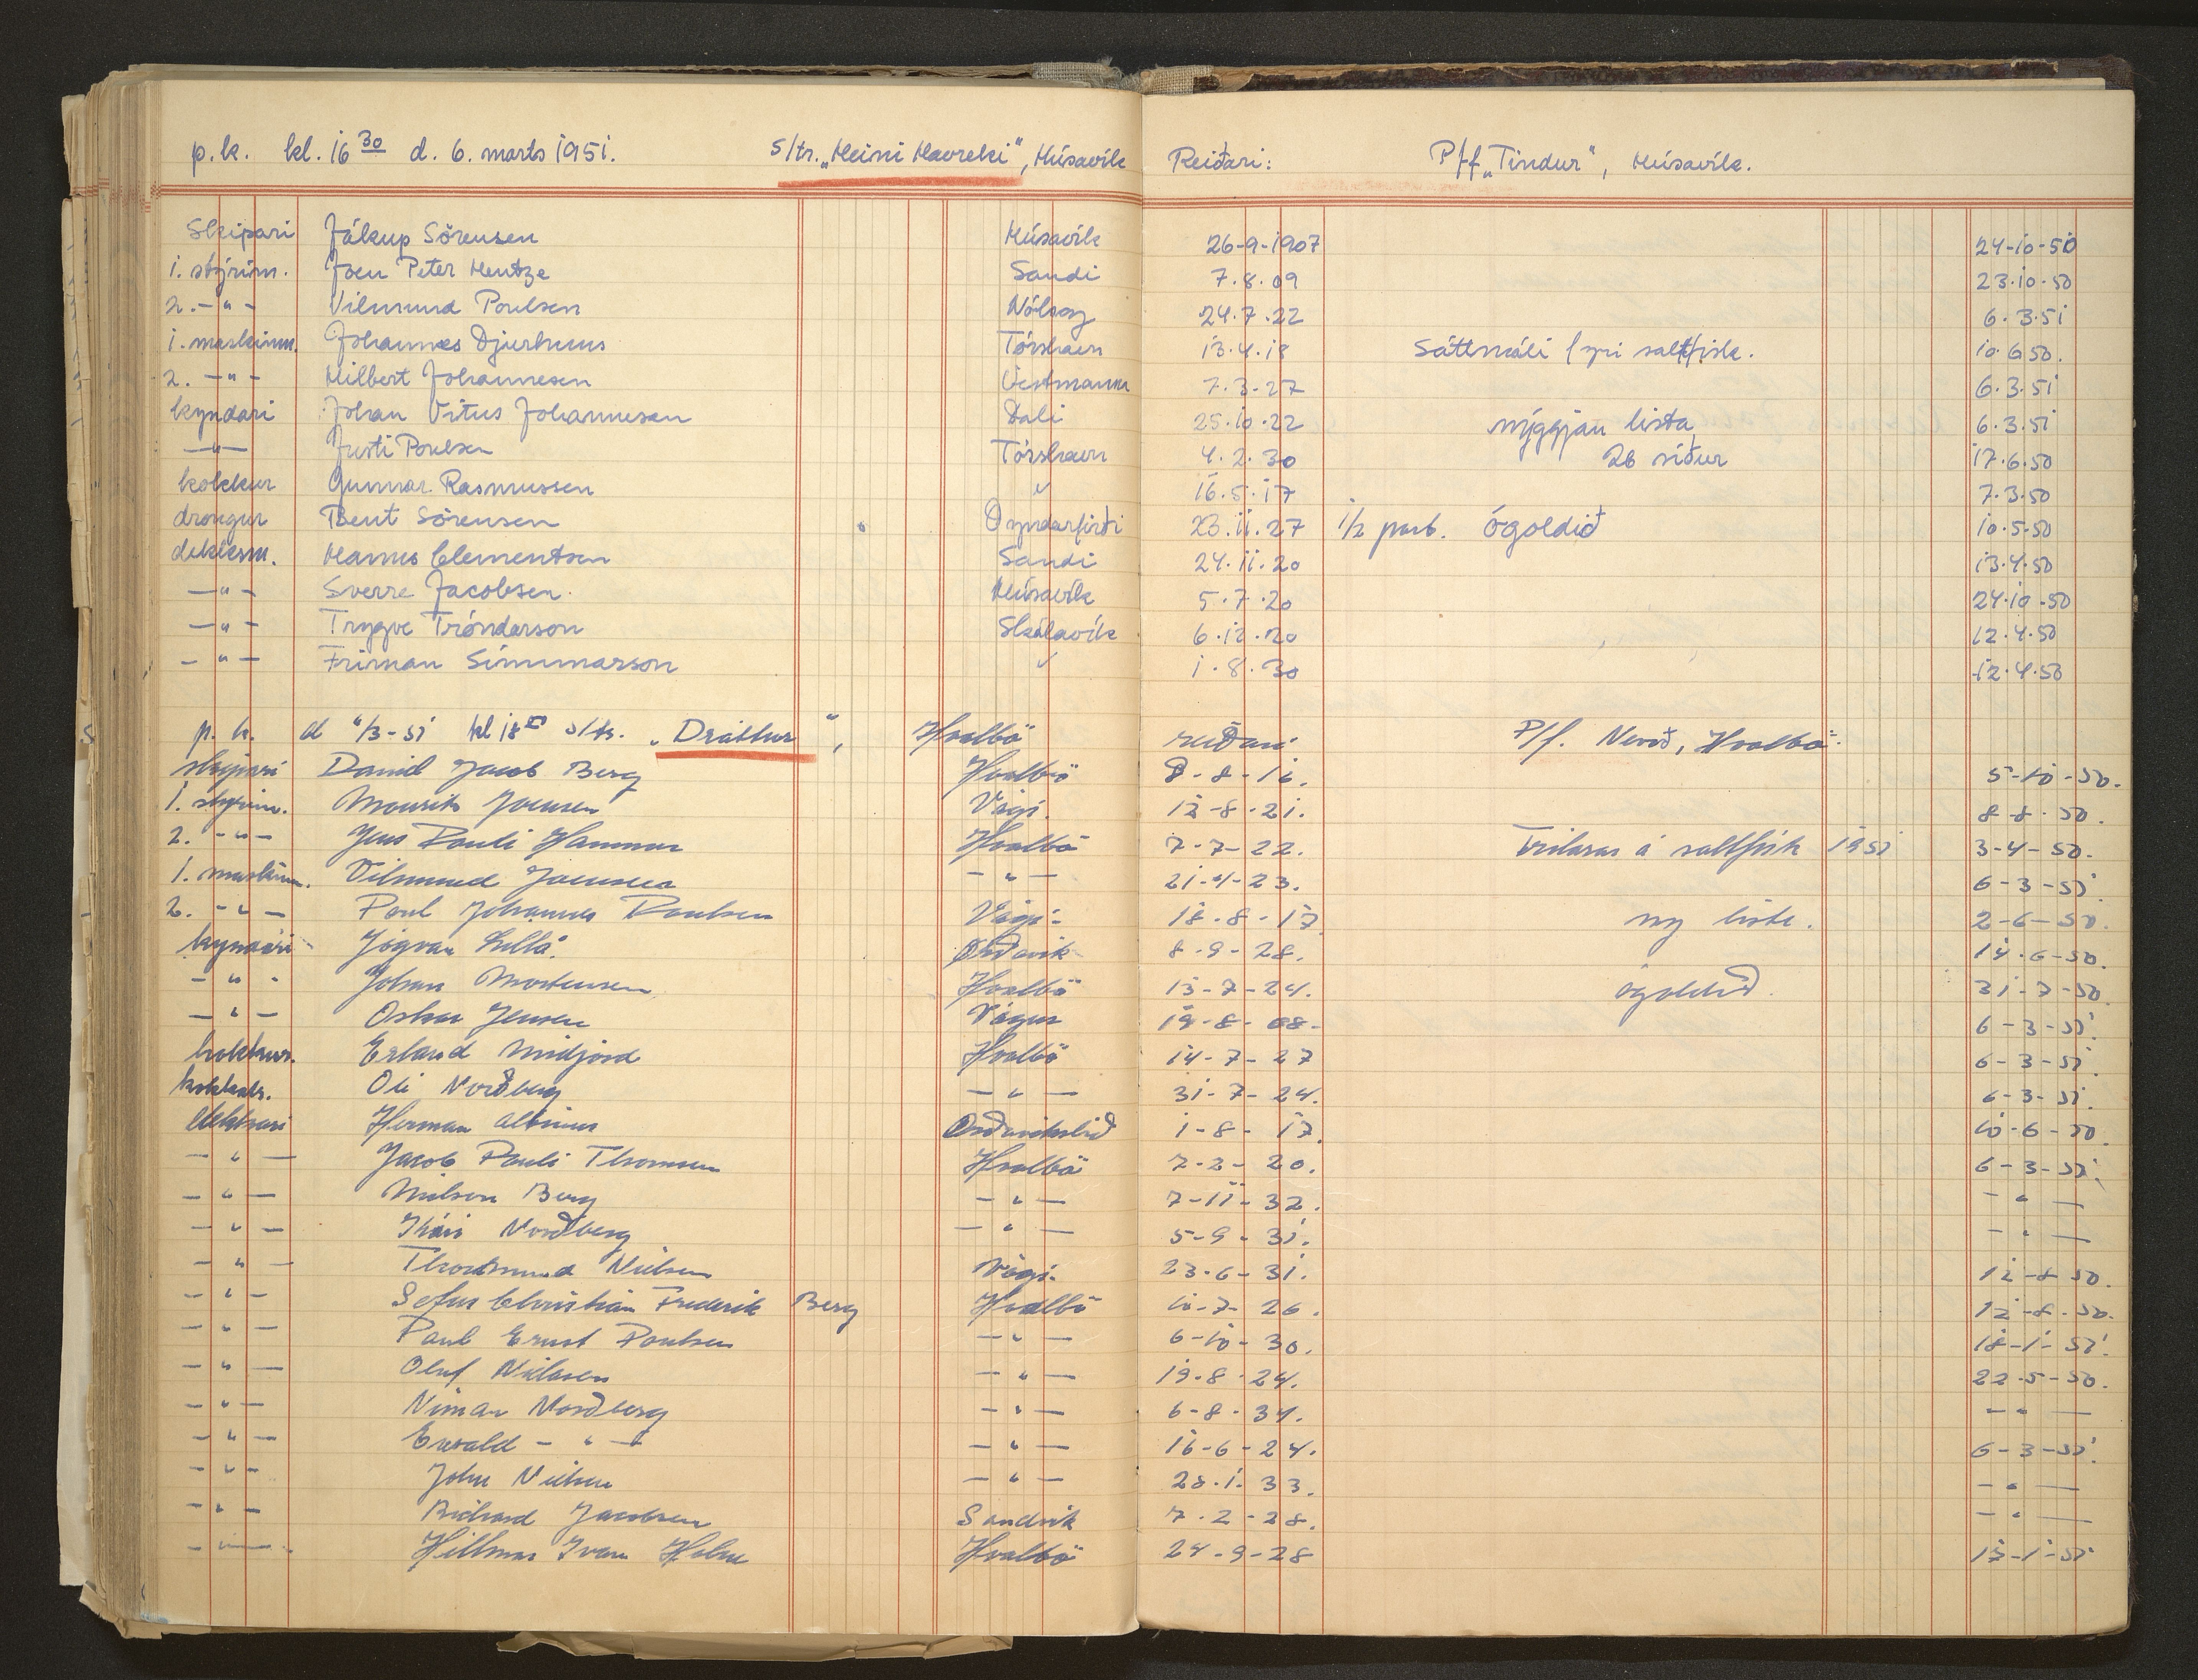 p.k. kl. 16 30 d. 6. marts 1951. s/tr. „Heini Havreki“, Húsavík Reiðari: P/f „Tindur“, Húsavík.
Skipari Jákup Sörensen Húsavík 26-9-1907 24-10-50
1. stýrim. Joen Peter Hentze Sandi 7.8.09 23.10.50
2. -"- Vilmund Poulsen Nólsoy 24.7.22 6.3.51
1. maskinm. Johannes Djurhuus Tórshavn 13.4.18 Sáttmáli fyri saltfisk. 10.6.50.
2. -"- Hilbert Johannesen Vestmanna 7.3-27 6.3.51
kyndari Johan Vitus Johannesen Dali 25.10.22 nýggjan lista 6.3.51
-"- Justi Poulsen Tórshavn 4.2.30 26 síður 17.6.50
kokkur Gunnar Rasmussen " 16.5.17 7.3.50
drongur Bent Sörensen Oyndarfirði 23.11.27 1/2 part. ógoldið 10.5-50
dekksm. Hanus Clementsen Sandi 24.11.20 13.4.50
-"- Sverre Jacobsen. Húsavík 5.7.20 24.10.50
-"- Trygve Tróndarson Skálavík 6.12.20 12.4.50
-"- Friman Simmarson " 1.8.30 12.4.50
p.k. d 6/3-51 kl 18 s/tr. „Dráttur“, Hvalbö reiðari P/f. Nevið, Hvalbö.
skipari David Jacob Berg Hvalbö 8-8-16. 5-10-50.
1. styrim. Mourits Joensen Vági. 12-8-21. 8-8-50.
2. -"- Jens Pauli Hammer Hvalbö 7-7-22. Trilaras á saltfisk 1951 3-4-50.
1. maskinm. Vilmund Joensen -"- 21-4-23. 6-3-51.
2. -"- Poul Johannes Poulsen Vági. 18-8-17. ny liste. 2-6-50.
kyndari Jógvan Lillá. Örðavik 8-9-28. 14-6-50.
-"- Johan Mortensen Hvalbö 13-7-24. ógoldið. 31-7-50.
-"- Oskar Jensen Vágur 19-8-08- 6-3-51.
kokkur. Erland Midjord Hvalbö 14-7-27 6-3-51.
Oli Norðberg -"- 31-7-24. 6-3-51.
dekkari Herman Albinus Örðavikslið 1-8-17. 10-6-50.
-"- Jacob Pauli Thomsen Hvalbö 7-2-20. 6-3-51.
-"- Nielsen Berg -"- -7-11-32. -"-
-"- Norðberg -"- 5-9-31. -"-
-"- Nielsen Vági. 23-6-31. 12-8-50.
-"- Sofus Christian Frederik Berg Hvalbö 10-7-26. 12-8-50.
-"- Paul Ernst Poulsen -"- 6-10-30. 18-1-51.
-"- Oluf Nielsen -"- 19-8-24. 22-5-50.
-"- Nimar Norðberg -"- 6-8-34. -"-
-"- Ewald -"- -"- 16-6-24. 6-3-51.
-"- John Nielsen -"- 28-1-33. -"-
-"- Richard Jacobsen Sandvik 7-2-28. -"-
-"- Hilmar Ivan Holm Hvalbö 24-9-28 15-1-51